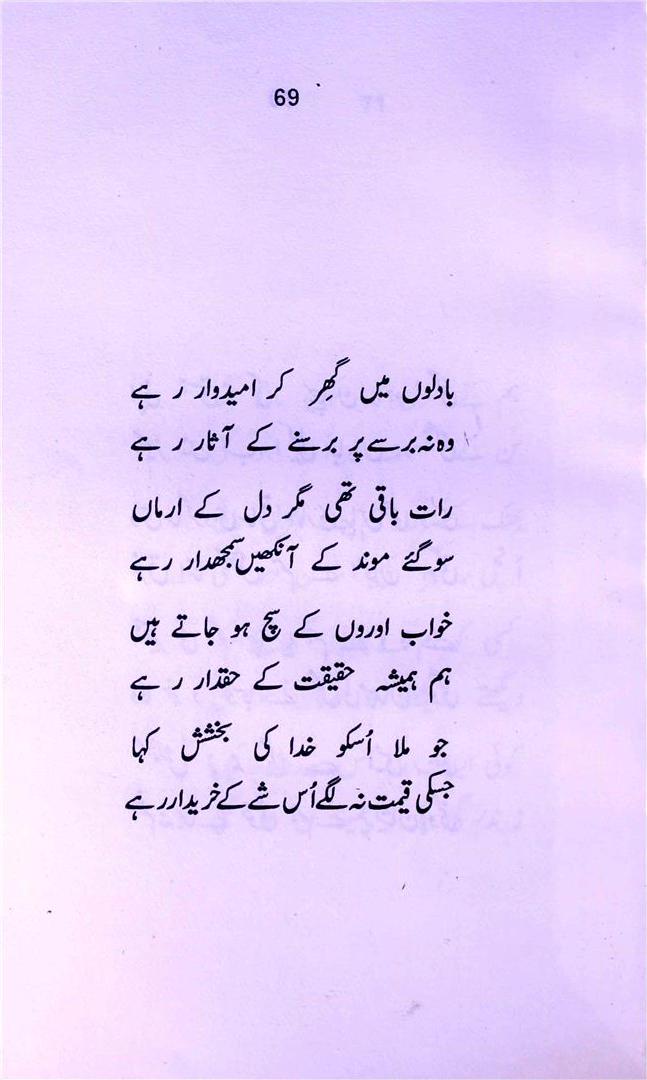 69
بادلوں میں گھِر کر امیدوار ر ہے
وہ نہ برسے پر برسنے کے آثار ر ہے
رات باقی تھی مگر دل کے ارماں
سوگئے موند کے آنکھیں سمجھدار رہے
خواب اوروں کے سچ ہو جاتے ہیں
ہم ہمیشہ حقیقت کے حقدار ر ہے
جو ملا اُسکو خدا کی بخشش کہا
جسکی قیمت نہ لگے اُس شے کے خریدار رہے